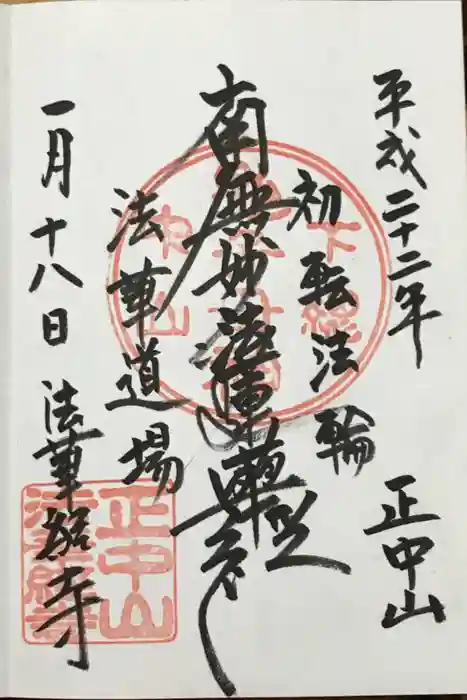 平成二十二年 正中山
初転法輪
南無妙法蓮華経
法華道場
一月十八日 法華経寺
正中山
法華経寺
中山